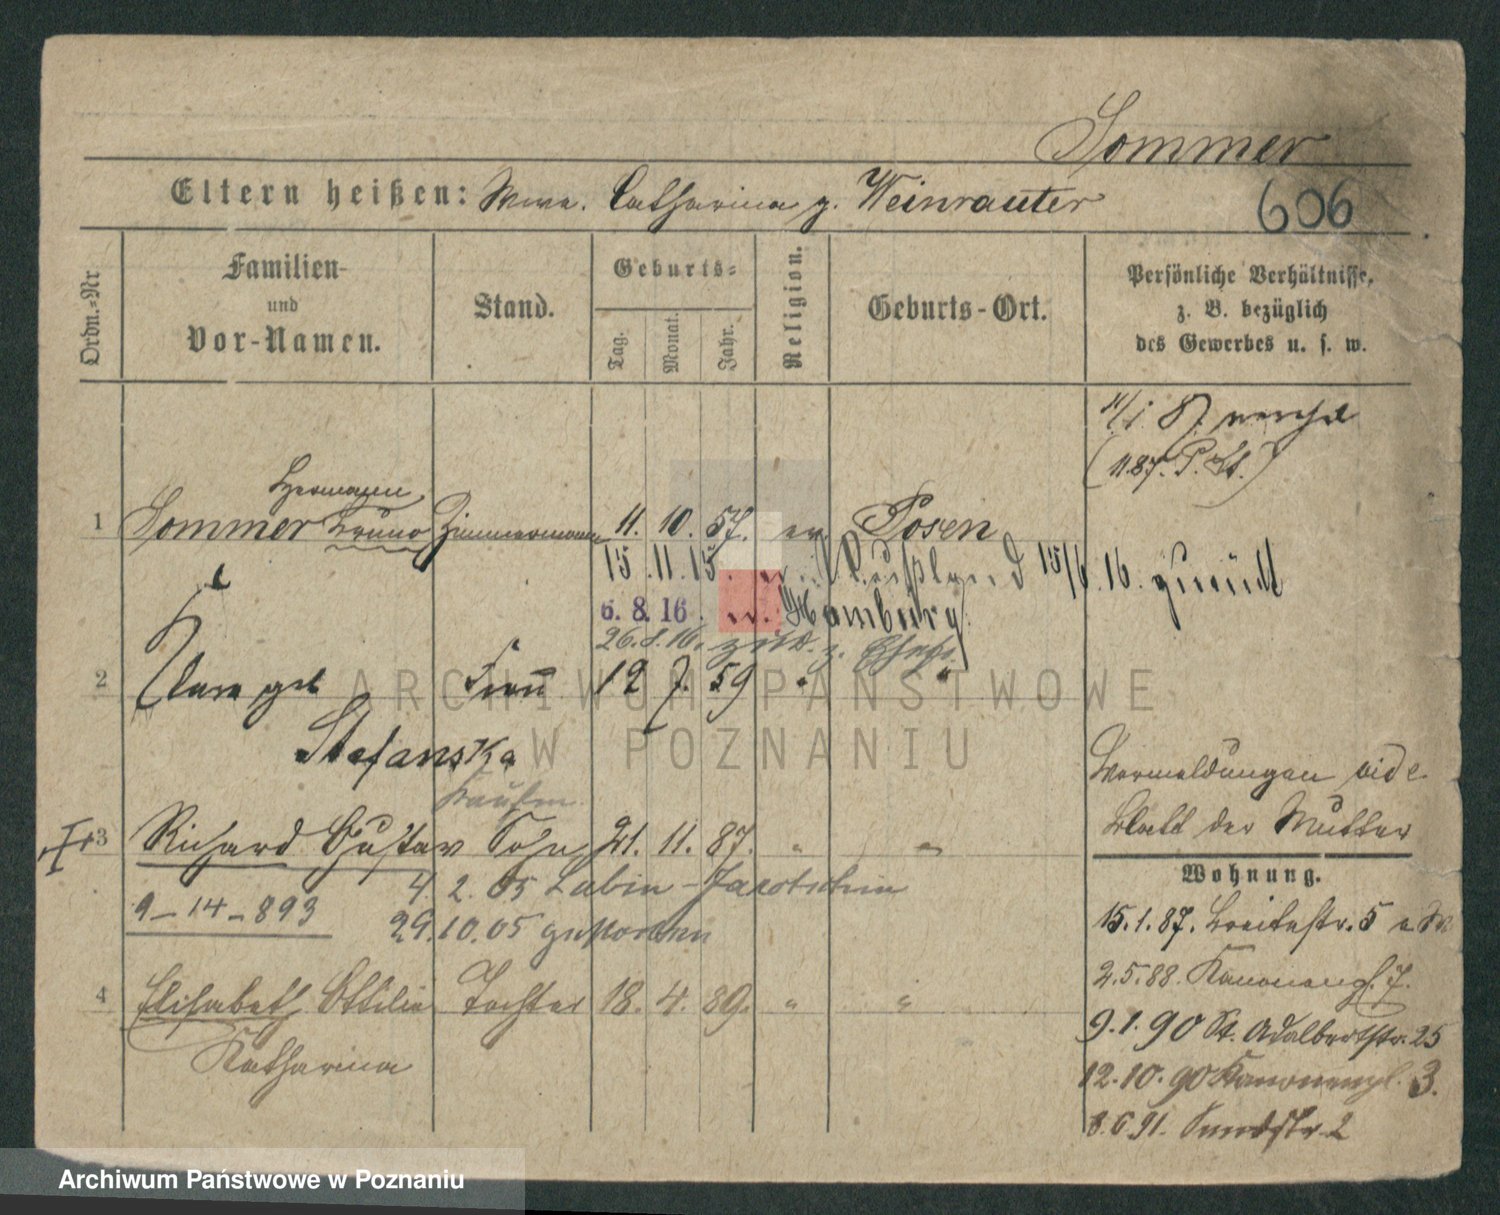 Sommer
Eltern heißen: Wwe. Catharina g. Weinrauter
606
Ordn.-Nr
Familien-
und
Vor-Namen.
Stand.
Geburts-
Tag.
Monat.
Jahr.
Religion.
Geburts-Ort.
Persönliche Verhältnisse,
z. B. bezüglich
des Gewerbes u. s. w.
11/1 87
(1187. P. )
Hermann
1 Sommer Bruno Zimmermann 11. 10. 57. ev. Posen
15. 11. 15. Rußland 15/6. 16. zurück
6. 8. 16. n. Hamburg
26. 8. 16. zrück. z.
2 Clara geb Frau 12 7. 59 " "
Stefanska
Kaufm.
Vermeldungen vide
Blatt der Mutter
3 Richard Gustav Sohn 21. 11. 87. " "
4. 2. 05 Lubin - Jarotschin
9-14-893
29. 10. 05 gestorben
4 Elisabeth Ottilie Tochter 18. 4. 89. " "
Katharina
Wohnung.
15. 1. 87. Breitestr. 5
2. 5. 88. Kanonenpl. 7.
9. 1. 90 St. Adalbertstr. 25
12. 10. 90 Kanonenpl. 3.
8. 6 91. 2
ARCHIWUM PAŃSTWOWE
W POZNANIU
Archiwum Państwowe w Poznaniu